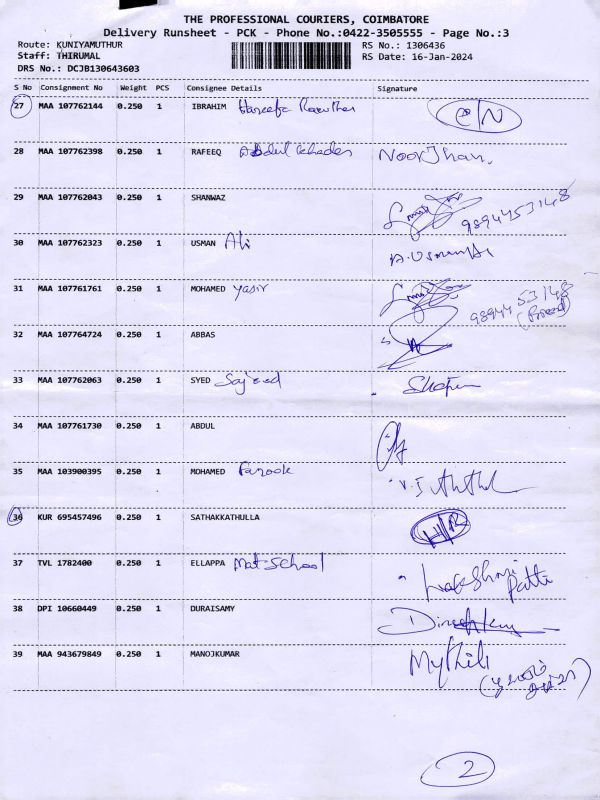 THE PROFESSIONAL COURIERS, COIMBATORE
Delivery Runsheet - PCK - Phone No.:0422-3505555 - Page No.:3
Route: KUNIYAMUTHUR RS No.: 1306436
Staff: THIRUMAL RS Date: 16-Jan-2024
DRS No.: DCJB130643603
S No Consignment No Weight PCS Consignee Details Signature
27 MAA 107762144 0.250 1 IBRAHIM Haneefa
28 MAA 107762398 0.250 1 RAFEEQ Abdul Khader Noor Jhan.
29 MAA 107762043 0.250 1 SHANWAZ 9894453148
30 MAA 107762323 0.250 1 USMAN Ali A.Usman Ali
31 MAA 107761761 0.250 1 MOHAMED Yasir 9894453148
32 MAA 107764724 0.250 1 ABBAS
33 MAA 107762063 0.250 1 SYED Sajeed
34 MAA 107761730 0.250 1 ABDUL
35 MAA 103900395 0.250 1 MOHAMED Farook
36 KUR 695457496 0.250 1 SATHAKKATHULLA
37 TVL 1782400 0.250 1 ELLAPPA Mat School
38 DPI 10660449 0.250 1 DURAISAMY
39 MAA 943679849 0.250 1 MANOJKUMAR Mythili
2